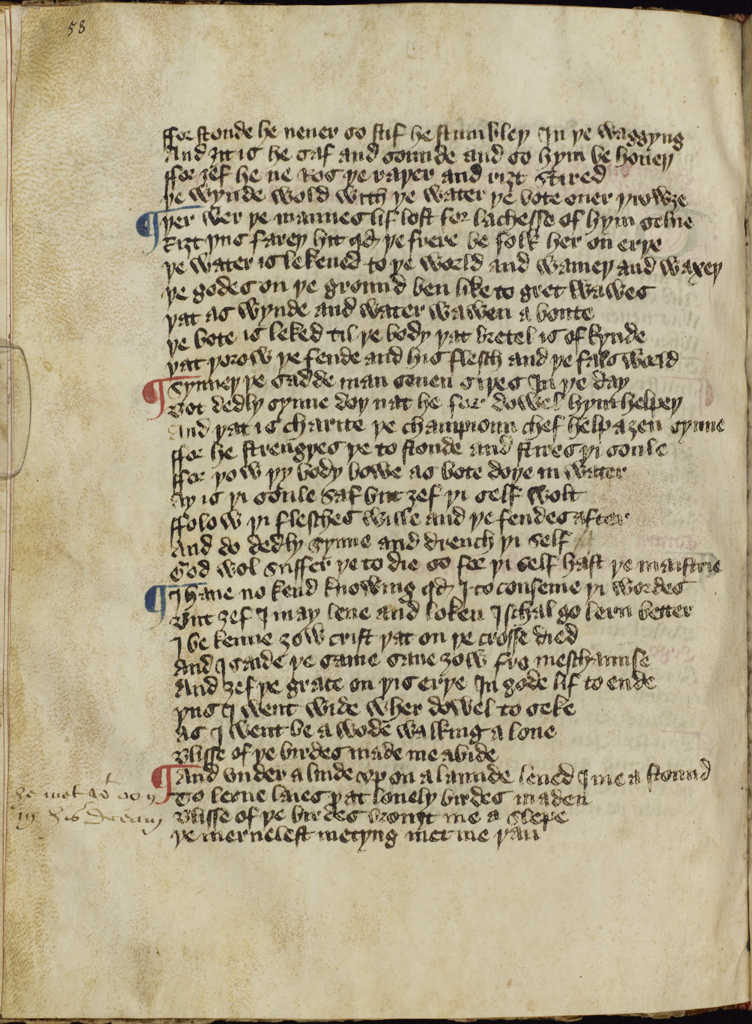 58
ffor stonde he neuer so stif he stumbleþ In þe waggyng
And ȝit is he saf and sounde and so hym be houeþ
ffor ȝef he ne ros þe raþer and riȝt stired
þe wynde wold with þe water þe bote ouer þrowȝe
þer wer þe mannes lif lost for lachesse of hym selue
Riȝt þus fareþ hit qd þe frere be folk her on erþe
þe water is lekened to þe world and waneþ and waxeþ
þe godes on þe ground ben like to gret wawes
þat as wynde and water wawen a boute
þe bote is leked til þe body þat bretel is of kynde
þat þorow þe fende and his flesch and þe fals world
Synneþ þe sadde man seuen siþes In þe day
Bot dedly synne doþ nat he for dowel hym helpeþ
And þat is charite þe champioun chef help aȝen synne
ffor he strengþes þe to stonde and stires þi soule
ffor þow þy body bowe as bote doþe in water
Ay is þi soule saf but ȝef þi self wolt
ffolow þi flesches wille and þe fendes after
And do dedly synne and drench þi self
God wol suffer þe to die so fer þi self hast þe maistrie
I haue no kend knowing qd I to conseiue þi wordes
But ȝef I may leue and loken I schal go lern better
I be kenne ȝow crist þat on þe crosse died
And I saide þe same saue ȝow fro meschaunse
And ȝef þe grace on þis erþe In gode lif to ende
þus I went wide wher dowel to seke
As I went be a wode walking a lone
Blisse of þe birdes made me abide
And vnder a linde vp on a launde lened I me a stound
To lerne laies þat louely birdes maden
he met wt do w
in his dream
Blisse of þe birdes brouȝt me a slepe
þe merueilest metyng met me þan